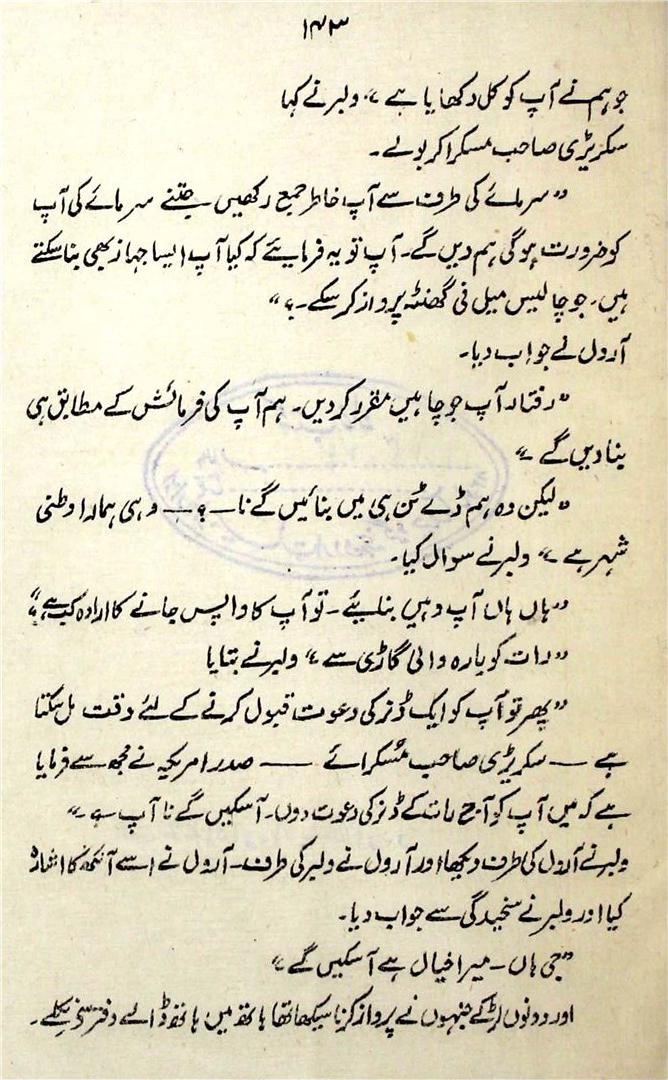 ۱۴۳
جو ہم نے آپ کو کل دکھایا ہے” ولبر نے کہا
سکریٹری صاحب مسکرا کر بولے۔
”سرمائے کی طرف سے آپ خاطر جمع رکھیں جتنے سرمائے کی آپ
کو ضرورت ہوگی ہم دیں گے۔ آپ تو یہ فرمایئے کہ کیا آپ ایسا جہاز بھی بنا سکتے
ہیں۔ جو چالیس میل فی گھنٹہ پرواز کر سکے۔؟“
آرول نے جواب دیا۔
”رفتار آپ جو چاہیں مقرر کر دیں۔ ہم آپ کی فرمائش کے مطابق ہی
بنا دیں گے“
”لیکن وہ ہم ڈے ٹن ہی میں بنائیں گے نا—؟— وہی ہمارا وطنی
شہر ہے“ ولبر نے سوال کیا۔
”ہاں ہاں آپ وہیں بنایئے۔ تو آپ کا واپس جانے کا ارادہ کب ہے؟“
”رات کو بارہ والی گاڑی سے“ ولبر نے بتایا
”پھر تو آپ کو ایک ڈنر کی دعوت قبول کرنے کے لئے وقت مل سکتا
ہے — سکریٹری صاحب مسُکرائے — صدر امریکہ نے مجھ سے فرمایا
ہے کہ میں آپ کو آج رات کے ڈنر کی دعوت دوں۔ آ سکیں گے نا آپ ۔؟“
ولبر نے آرول کی طرف دیکھا اور آرول نے ولبر کی طرف۔ آرول نے اسے آنکھ کا اشارہ
کیا اور ولبر نے سنجیدگی سے جواب دیا۔
”جی ہاں۔ میرا خیال ہے آ سکیں گے“
اور دونوں لڑکے جنہوں نے پرواز کرنا سیکھا تھا ہاتھ میں ہاتھ ڈالے دفتر سے نکلے۔